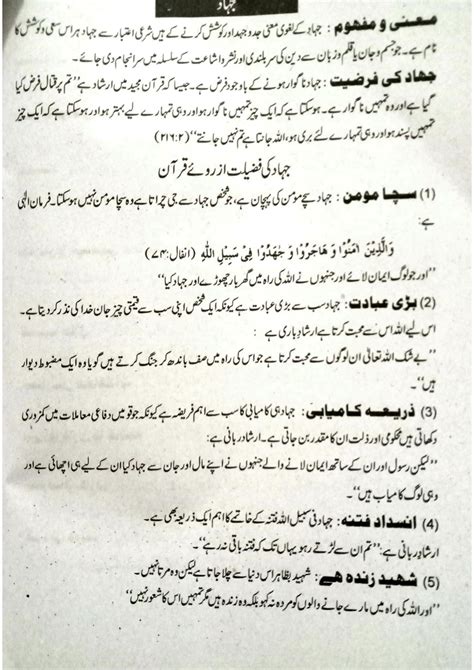 جہاد
معنی و مفہوم : جہاد کے لغوی معنی جدوجہد اور کوشش کرنے کے ہیں شرعی اعتبار سے جہاد ہر اس سعی و کوشش کا
نام ہے۔ جو جسم و جان یا قلم و زبان سے دین کی سربلندی اور نشر و اشاعت کے سلسلہ میں سرانجام دی جائے۔
جہاد کی فرضیت : جہاد ناگوار ہونے کے باوجود فرض ہے۔ جیسا کہ قرآن مجید میں ارشاد ہے ”تم پر قتال فرض کیا
گیا ہے اور وہ تمہیں ناگوار ہے۔ ہو سکتا ہے کہ ایک چیز تمہیں ناگوار ہو اور وہی تمہارے لیے بہتر ہو اور ہو سکتا ہے کہ ایک چیز
تمہیں پسند ہو اور وہی تمہارے لئے بری ہو، اللہ جانتا ہے تم نہیں جانتے“ (۲:۲۱۶)
جہاد کی فضیلت از روئے قرآن
(1) سچا مومن : جہاد سچے مومن کی پہچان ہے، جو شخص جہاد سے جی چراتا ہے وہ سچا مومن نہیں ہو سکتا۔ فرمان الٰہی
ہے:
وَالَّذِیْنَ اٰمَنُوْا وَ هَاجَرُوْا وَ جٰهَدُوْا فِیْ سَبِیْلِ اللّٰهِ (انفال:۷۴)
”اور جو لوگ ایمان لائے اور جنہوں نے اللہ کی راہ میں گھر بار چھوڑے اور جہاد کیا“
(2) بڑی عبادت : جہاد سب سے بڑی عبادت ہے کیونکہ ایک شخص اپنی سب سے قیمتی چیز جان خدا کی نذر کر دیتا ہے۔
اس لیے اللہ اس سے محبت کرتا ہے ارشاد باری ہے :
”بے شک اللہ تعالیٰ ان لوگوں سے محبت کرتا ہے جو اس کی راہ میں صف باندھ کر جنگ کرتے ہیں گویا وہ ایک مضبوط دیوار
ہیں“۔
(3) ذریعہ کامیابی : جہاد ہی کامیابی کا سب سے اہم فریضہ ہے کیونکہ جو قومیں دفاعی معاملات میں کمزوری
دکھاتی ہیں محکومی اور ذلت ان کا مقدر بن جاتی ہے۔ ارشاد ربانی ہے:
”لیکن رسول اور ان کے ساتھ ایمان لانے والے جنہوں نے اپنے مال اور جان سے جہاد کیا ان کے لیے ہی اچھائی ہے اور
وہی لوگ کامیاب ہیں“۔
(4) انسداد فتنہ : جہاد فی سبیل اللہ فتنہ کے خاتمے کا اہم ایک ذریعہ بھی ہے۔
ارشاد ربانی ہے: ”تم ان سے لڑتے رہو یہاں تک کہ فتنہ باقی نہ رہے“۔
(5) شہید زندہ ہے : شہید بظاہر اس دنیا سے چلا جاتا ہے لیکن وہ مرتا نہیں۔
”اور اللہ کی راہ میں مارے جانے والوں کو مردہ نہ کہو بلکہ وہ زندہ ہیں مگر تمہیں اس کا شعور نہیں“